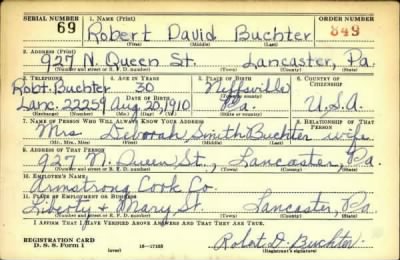 SERIAL NUMBER 1. NAME (Print) ORDER NUMBER
69 Robert David Buchter 849
(First) (Middle) (Last)
2. ADDRESS (Print)
927 N. Queen St. Lancaster, Pa.
(Number and street or R. F. D. number) (Town) (County) (State)
3. TELEPHONE 4. AGE IN YEARS 5. PLACE OF BIRTH 6. COUNTRY OF CITIZENSHIP
Robt. Buchter 30 Neffsville
Lanc. 22259 Aug. 20, 1910 Pa. U.S.A.
7. NAME OF PERSON WHO WILL ALWAYS KNOW YOUR ADDRESS 8. RELATIONSHIP OF THAT PERSON
Mrs Deborah Smith Buchter wife
(Mr., Mrs., Miss) (First) (Middle) (Last)
9. ADDRESS OF THAT PERSON
927 N. Queen St., Lancaster, Pa.
(Number and street or R. F. D. number) (Town) (County) (State)
10. EMPLOYER'S NAME
Armstrong Cork Co.
11. PLACE OF EMPLOYMENT OR BUSINESS
Liberty & Mary St. Lancaster, Pa.
(Number and street or R. F. D. number) (Town) (County) (State)
I AFFIRM THAT I HAVE VERIFIED ABOVE ANSWERS AND THAT THEY ARE TRUE.
REGISTRATION CARD
D. S. S. Form 1 16-17105 Robert D. Buchter.
(Registrant's signature)